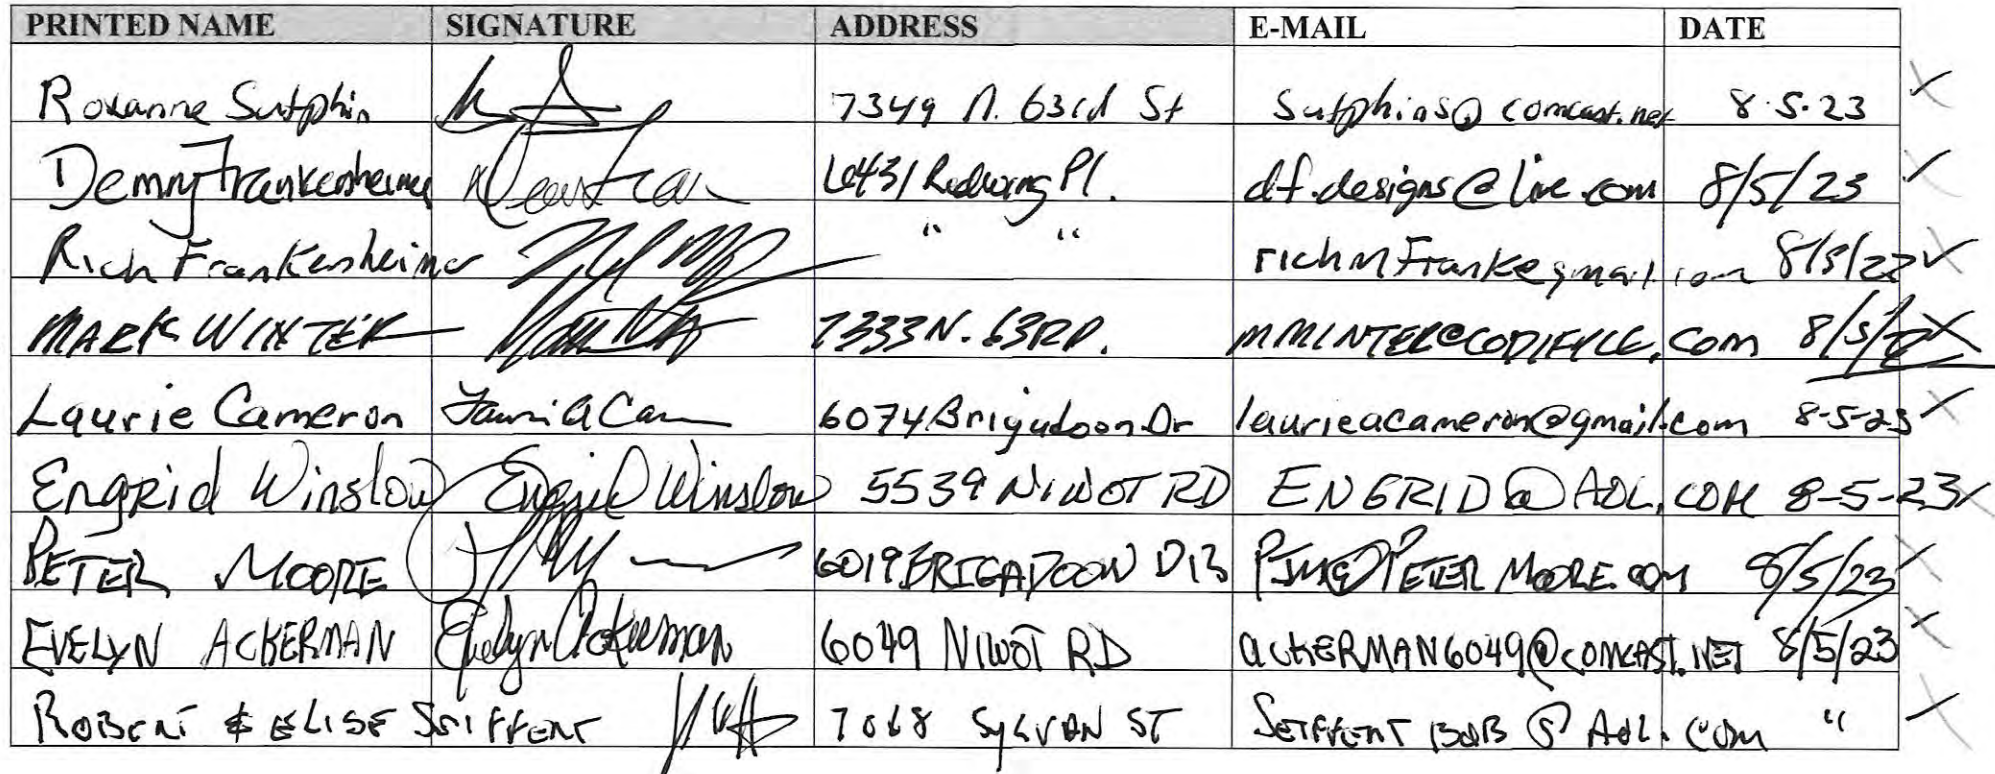 PRINTED NAME SIGNATURE ADDRESS E-MAIL DATE
Roxanne Sutphin 7349 N. 63rd St Sutphins@comcast.net 8.5.23
Demmy Frankensheimer 6431 Redwing Pl. df.designs@live.com 8/5/23
Rich Frankensheimer " " richmFranke gmail.com 8/5/23
MARK WINTER 7333 N. 63RD. .com 8/5/
Laurie Cameron Lauri A Cam 6074 Brigadoon Dr laurieacameron@gmail.com 8-5-23
Engrid Winslow Engrid Winslow 5539 NIWOT RD ENGRID@AOL.COM 8-5-23
PETER MOORE 6019 BRIGADOON DR PJM@PETERMOORE.COM 8/5/23
EVELYN ACKERMAN Evelyn Ackerman 6049 NIWOT RD ACKERMAN6049@COMCAST.NET 8/5/23
ROBERT & ELISE SEIFFERT 7068 SYLVAN ST SEIFFERTBOB@AOL.COM "